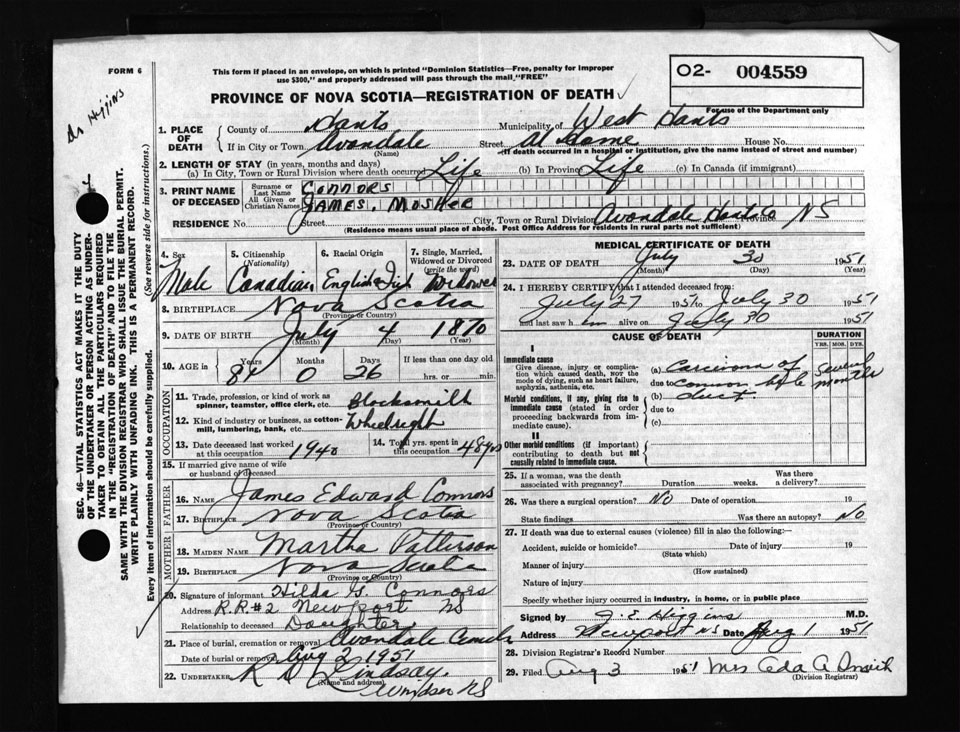 FORM 6
Dr Higgins
This form if placed in an envelope, on which is printed "Dominion Statistics—Free, penalty for improper
use $300," and properly addressed will pass through the mail "FREE"
PROVINCE OF NOVA SCOTIA—REGISTRATION OF DEATH
O2- 004559
For use of the Department only
SEC. 46—VITAL STATISTICS ACT MAKES IT THE DUTY
OF THE UNDERTAKER OR PERSON ACTING AS UNDER-
TAKER TO OBTAIN ALL THE PARTICULARS REQUIRED
IN THE "REGISTRATION OF DEATH" AND TO FILE THE
SAME WITH THE DIVISION REGISTRAR WHO SHALL ISSUE THE BURIAL PERMIT.
WRITE PLAINLY WITH UNFADING INK. THIS IS A PERMANENT RECORD.
Every item of information should be carefully supplied. (See reverse side for instructions.)
1. PLACE OF DEATH
County of Hants Municipality of West Hants
If in City or Town Avondale Street At Home House No.
(Name) (If death occurred in a hospital or institution, give the name instead of street and number)
2. LENGTH OF STAY (in years, months and days)
(a) In City, Town or Rural Division where death occurred Life (b) In Province Life (c) In Canada (if immigrant)
3. PRINT NAME OF DECEASED
Surname or Last Name CONNORS
All Given or Christian Names JAMES, MOSHER
RESIDENCE No. Street City, Town or Rural Division Avondale Hants Co NS
(Residence means usual place of abode. Post Office Address for residents in rural parts not sufficient)
4. Sex 5. Citizenship (Nationality) 6. Racial Origin 7. Single, Married, Widowed or Divorced (write the word)
Male Canadian English Widower
8. BIRTHPLACE Nova Scotia
(Province or Country)
9. DATE OF BIRTH July 4 1870
(Month) (Day) (Year)
10. AGE in Years Months Days If less than one day old
81 0 26 hrs. or min.
OCCUPATION
11. Trade, profession, or kind of work as
spinner, teamster, office clerk, etc. Blacksmith
12. Kind of industry or business, as cotton-
mill, lumbering, bank, etc. Wheelright
13. Date deceased last worked at this occupation 1940 14. Total yrs. spent in this occupation 48 yrs
15. If married give name of wife
or husband of deceased
FATHER
16. NAME James Edward Connors
17. BIRTHPLACE Nova Scotia
(Province or Country)
MOTHER
18. MAIDEN NAME Martha Patterson
19. BIRTHPLACE Nova Scotia
(Province or Country)
20. Signature of informant Hilda G. Connors
Address R.R.#2 Newport NS
Relationship to deceased Daughter
21. Place of burial, cremation or removal Avondale
Date of burial or removal Aug 2 1951
22. UNDERTAKER Lindsay. Windsor NS
(Name and address)
MEDICAL CERTIFICATE OF DEATH
23. DATE OF DEATH July 30 1951
(Month) (Day) (Year)
24. I HEREBY CERTIFY that I attended deceased from:
July 27 1951 to July 30 1951
and last saw him alive on July 30 1951
CAUSE OF DEATH DURATION
YRS. MOS. DYS.
I
Immediate cause
Give disease, injury or complica-
tion which caused death, NOT the
mode of dying, such as heart failure,
asphyxia, asthenia, etc.
(a) Carcinoma of Several
due to common bile months
Morbid conditions, if any, giving rise to
immediate cause (stated in order
proceeding backwards from im-
mediate cause).
(b) duct
due to
(c)
II
Other morbid conditions (if important)
contributing to death but not
causally related to immediate cause.
25. If a woman, was the death
associated with pregnancy? Duration weeks. Was there a delivery?
26. Was there a surgical operation? No Date of operation 19
State findings Was there an autopsy? No
27. If death was due to external causes (violence) fill in also the following:—
Accident, suicide or homicide? Date of injury 19
(State which)
Manner of injury
(How sustained)
Nature of injury
Specify whether injury occurred in industry, in home, or in public place
Signed by J. E. Higgins M.D.
Address Newport NS Date Aug 1 1951
28. Division Registrar's Record Number
29. Filed Aug 3 1951 Mrs Ada A
(Division Registrar)